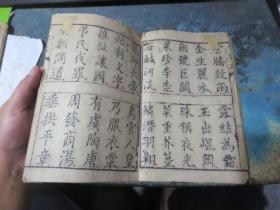 騰致雨 露結為霜
金生麗水 玉出崑岡
劍號巨闕 珠稱夜光
果珍李柰 菜重芥薑
海鹹河淡 鱗潛羽翔
師火帝 鳥官人皇
制文字 乃服衣裳
推位讓國 有虞陶唐
弔民伐罪 周發商湯
朝問道 垂拱平章